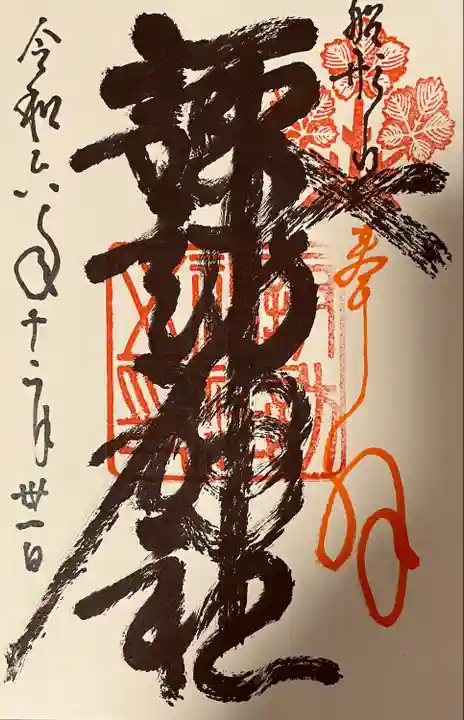 船形山
奉拝
諏訪神社
令和六年十二月卅一日